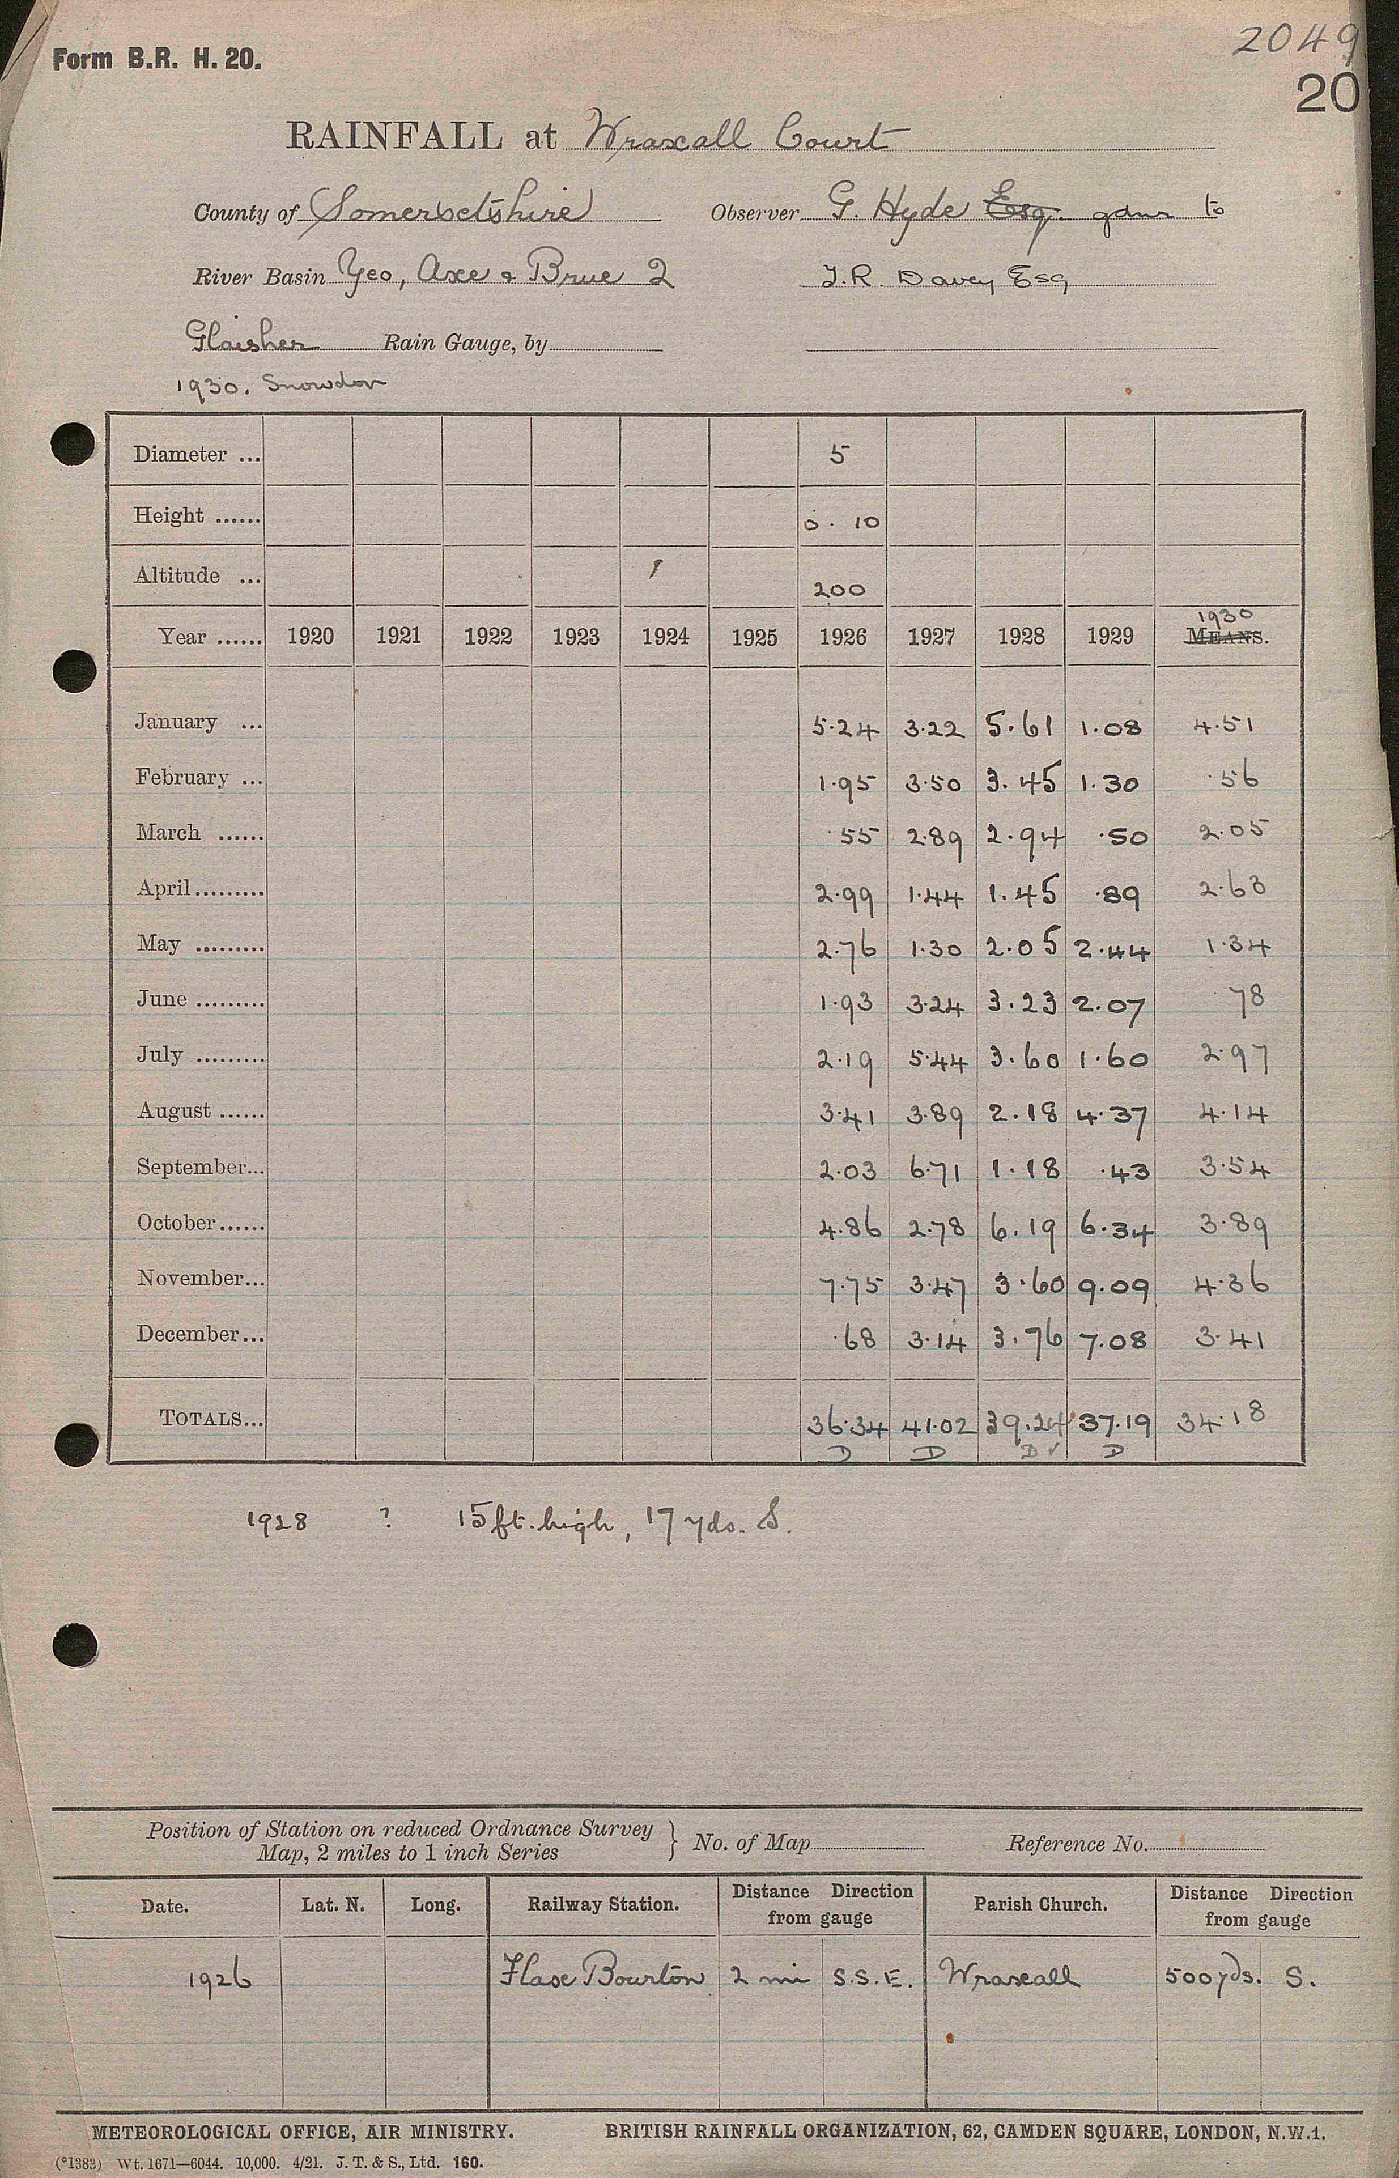 2049
Form B.R. H. 20.
20
RAINFALL at Wraxall Court
County of Somersetshire Observer G. Hyde Esq. gdnr to
River Basin Yeo, Axe & Brue 2 T.R. Davey Esq
Glaisher Rain Gauge, by
1930. Snowdon
Diameter ... 5
Height ...... 0. 10
Altitude ... 200
1930
Year ...... 1920 1921 1922 1923 1924 1925 1926 1927 1928 1929 MEANS.
January ... 5.24 3.22 5.61 1.08 4.51
February ... 1.95 3.50 3.45 1.30 .56
March ...... .55 2.89 2.94 .50 2.05
April......... 2.99 1.44 1.45 .89 2.63
May ......... 2.76 1.30 2.05 2.44 1.34
June ......... 1.93 3.24 3.23 2.07 .78
July ......... 2.19 5.44 3.60 1.60 2.97
August ...... 3.41 3.89 2.18 4.37 4.14
September... 2.03 6.71 1.18 .43 3.54
October...... 4.86 2.78 6.19 6.34 3.89
November... 7.75 3.47 3.60 9.09 4.36
December... .68 3.14 3.76 7.08 3.41
TOTALS... 36.34 41.02 39.24 37.19 34.18
D D D ✓ D
1928 ? 15 ft. high, 17 yds. S.
Position of Station on reduced Ordnance Survey
Map, 2 miles to 1 inch Series } No. of Map Reference No.
Date. Lat. N. Long. Railway Station. Distance Direction from gauge Parish Church. Distance Direction from gauge
1926 Flax Bourton 2 mi S.S.E. Wraxall 500 yds. S.
METEOROLOGICAL OFFICE, AIR MINISTRY. BRITISH RAINFALL ORGANIZATION, 62, CAMDEN SQUARE, LONDON, N.W.1.
(*1383) Wt. 1671—6044. 10,000. 4/21. J. T. & S., Ltd. 160.